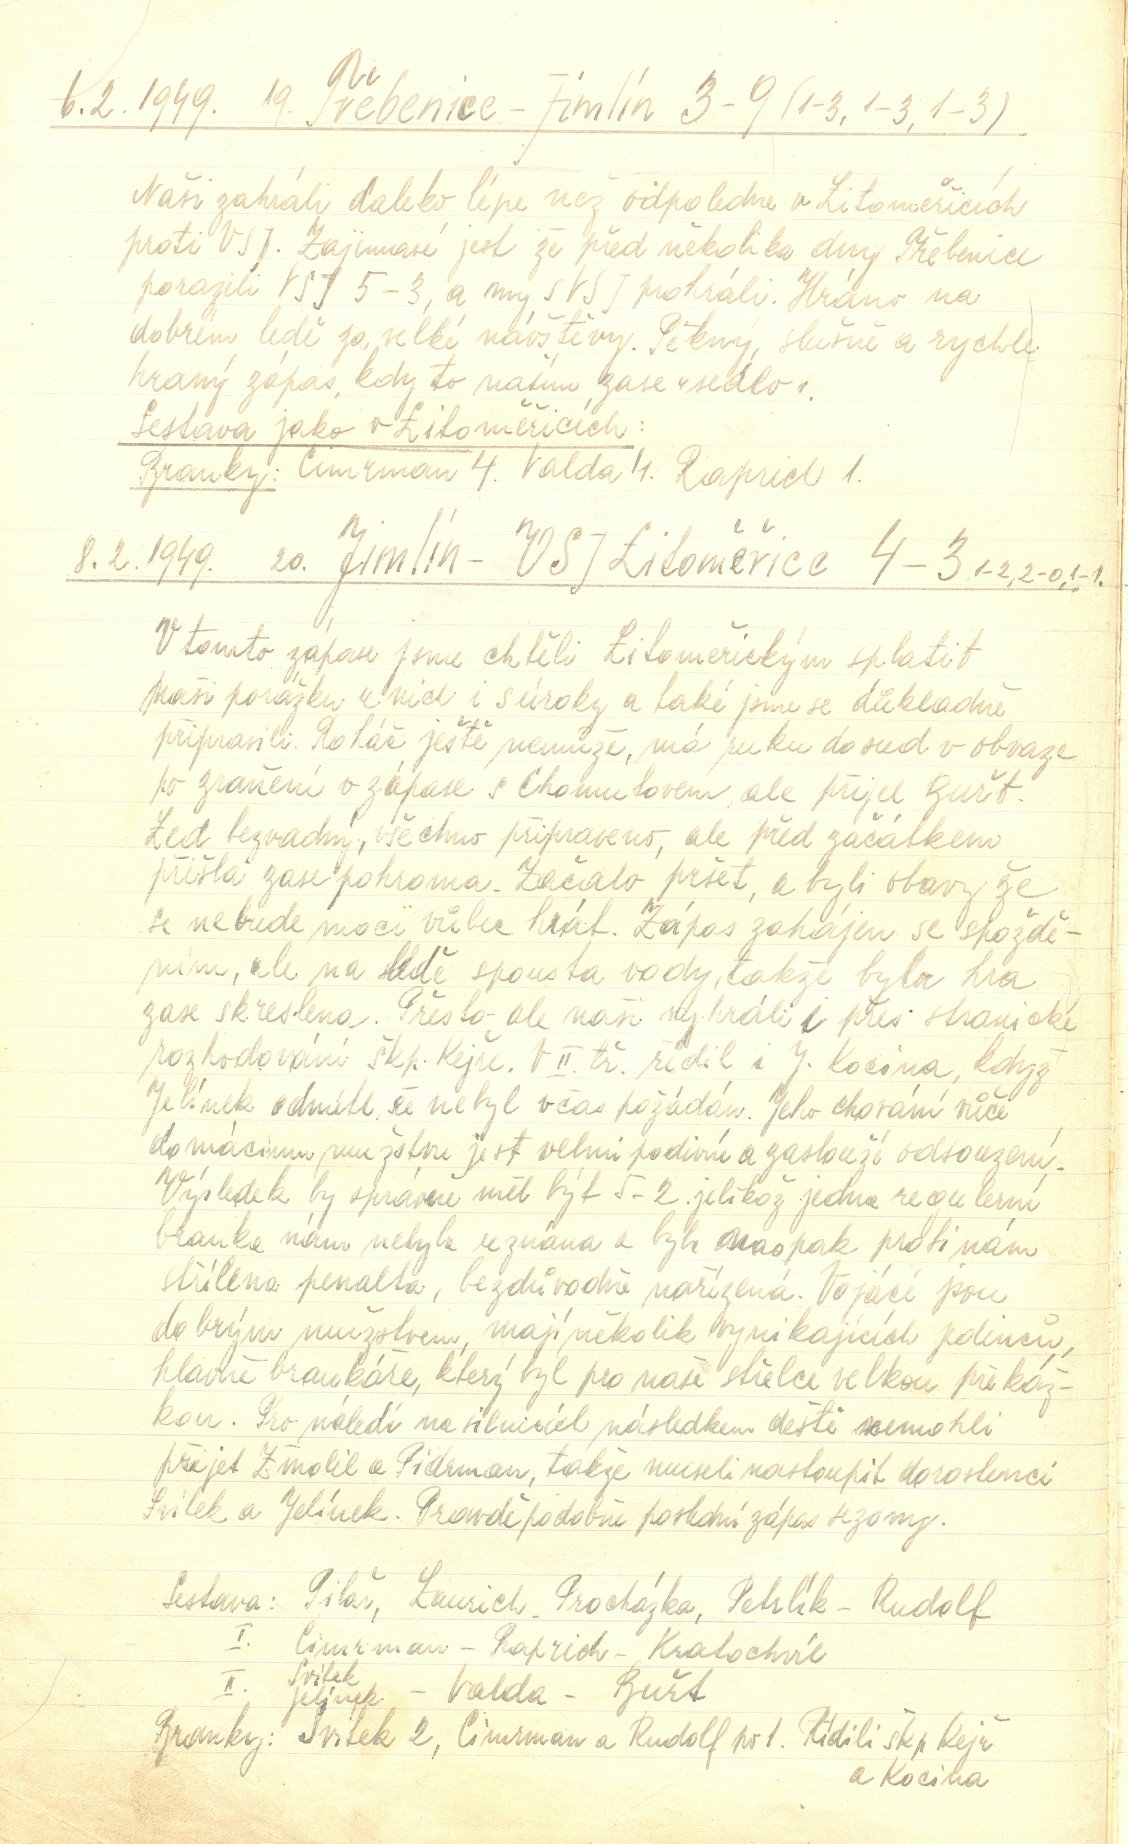 6.2.1949. 19. Třebenice - Jimlín 3-9 (1-3, 1-3, 1-3)
Naši zahráli daleko lépe než odpoledne v Litoměřicích
proti VSJ. Zajímavé jest že před několika dny Třebenice
porazili VSJ 5-3, a my s VSJ prohráli. Hráno na
dobrém ledě za velké návštěvy. Pěkný, slušně a rychle
hraný zápas, kdy to našim zase "sedlo".
Sestava jako v Litoměřicích:
Branky: Cimrman 4. Valda 4. Raprich 1.
8.2.1949. 20. Jimlín - VSJ Litoměřice 4-3 1-2, 2-0, 1-1.
V tomto zápase jsme chtěli Litoměřickým splatit
naši porážku u nich i s úroky a také jsme se důkladně
připravili. Rotáč ještě nemůže, má ruku dosud v obvaze
po zranění v zápase s Chomutovem, ale přijel Buřt.
Led bezvadný, všechno připraveno, ale před začátkem
přišla zase pohroma. Začalo pršet, a byli obavy že
se nebude moci vůbec hrát. Zápas zahájen se zpoždě-
ním, ale na ledě spousta vody, takže byla hra
zase skreslena. Přesto ale naši vyhráli i přes stranické
rozhodování škp. Kejře. V II. tř. řídil i J. Kocina, když
Jelínek odmítl, že nebyl včas požádán. Jeho chování vůči
domácímu mužstvu jest velmi podivné a zaslouží odsouzení.
Výsledek by správně měl být 5-2 jelikož jedna regulerní
branka nám nebyla uznána a byla naopak proti nám
střílena penalta, bezdůvodně nařízená. Vojáci jsou
dobrým mužstvem, mají několik vynikajících jedinců,
hlavně brankáře, který byl pro naše střelce velkou překáž-
kou. Pro náledí na silnicích následkem deště nemohli
přijet Zmolil a Pidrman, takže museli nastoupit dorostenci
Svitek a Jelínek. Pravděpodobně poslední zápas sezony.
Sestava: Pilař, Laurich - Procházka, Petrlík - Rudolf
I. Cimrman - Raprich - Kratochvíl
II. Svitek
Jelínek - Valda - Buřt
Branky: Svitek 2, Cimrman a Rudolf po 1. Řídili škp Kejř
a Kocina